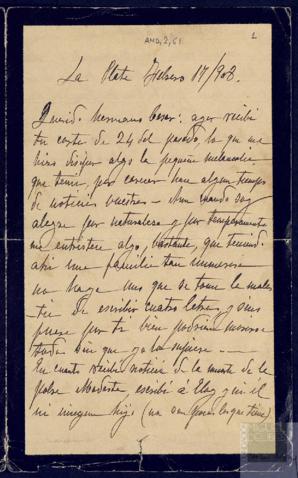 AMQ, 2, 61
1
La Plata Febrero 17/908.
Querido hermano Cesar: ayer recibi
tu carta de 24 del pasado, la que me
hizo disipar algo la pequeña melancolia
que tenia por carecer una algun tiempo
de noticias vuestras - Aun cuando soy
alegre por naturaleza y por temperamento
me entristece algo, bastante, que teniendo
ahi una familia tan inmensa
no haya uno que se tome la moles-
tia de escribir cuatro letras, y sino
fuese por ti bien podrian morirse
todos sin que yo lo supiera
En cuanto recibi noticia de la muerte de la
pobre Modesta escribí á Eloy y ni él
ni ningun hijo (no son pocos los que tiene)